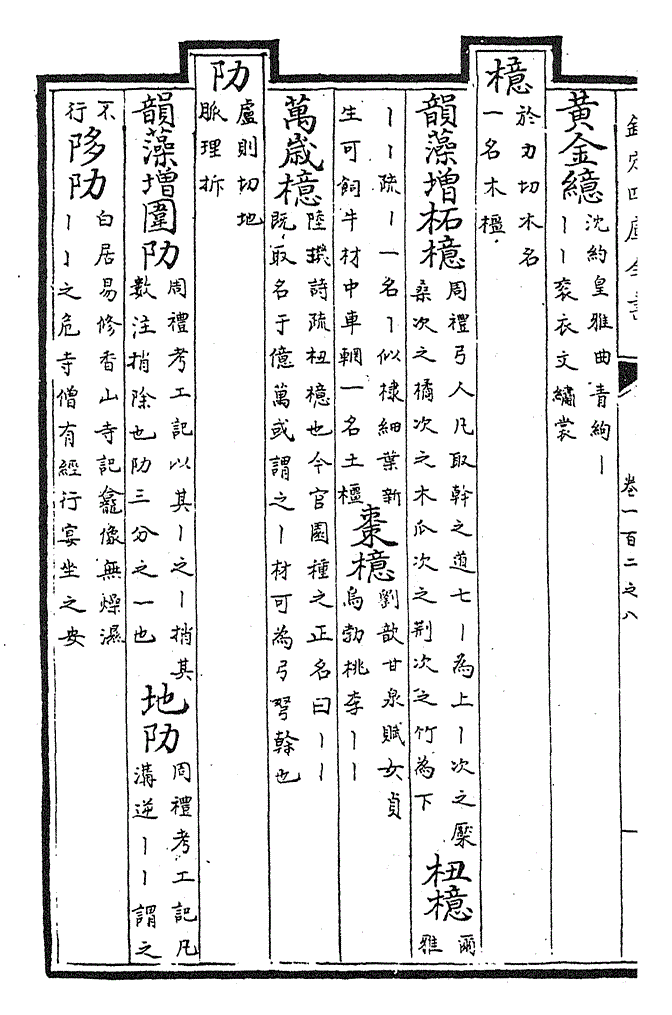 欽定四庫全書 卷一百二之八
黃金繶 沈約皇雅曲青絇丨
丨丨衮衣文繡裳
檍 於力切木名
一名木橿
韻藻增柘檍 周禮弓人凡取幹之道七丨為上丨次之檿
桑次之橘次之木瓜次之荆次之竹為下 杻檍 爾
雅
丨丨疏丨一名丨似棣細葉新
生可飼牛材中車輞一名土橿 棗檍 劉歆甘泉賦女貞
烏勃桃李丨丨
萬歳檍 陸璣詩疏杻檍也今官園種之正名曰丨丨
既取名于億萬或謂之丨材可為弓弩榦也
阞 盧則切地
脈理拆
韻藻增圍阞 周禮考工記以其丨之丨捎其
數注捎除也阞三分之一也 地阞 周禮考工記凡
溝逆丨丨謂之
不
行 陊阞 白居易修香山寺記龕像無燥濕
丨丨之危寺僧有經行宴坐之安